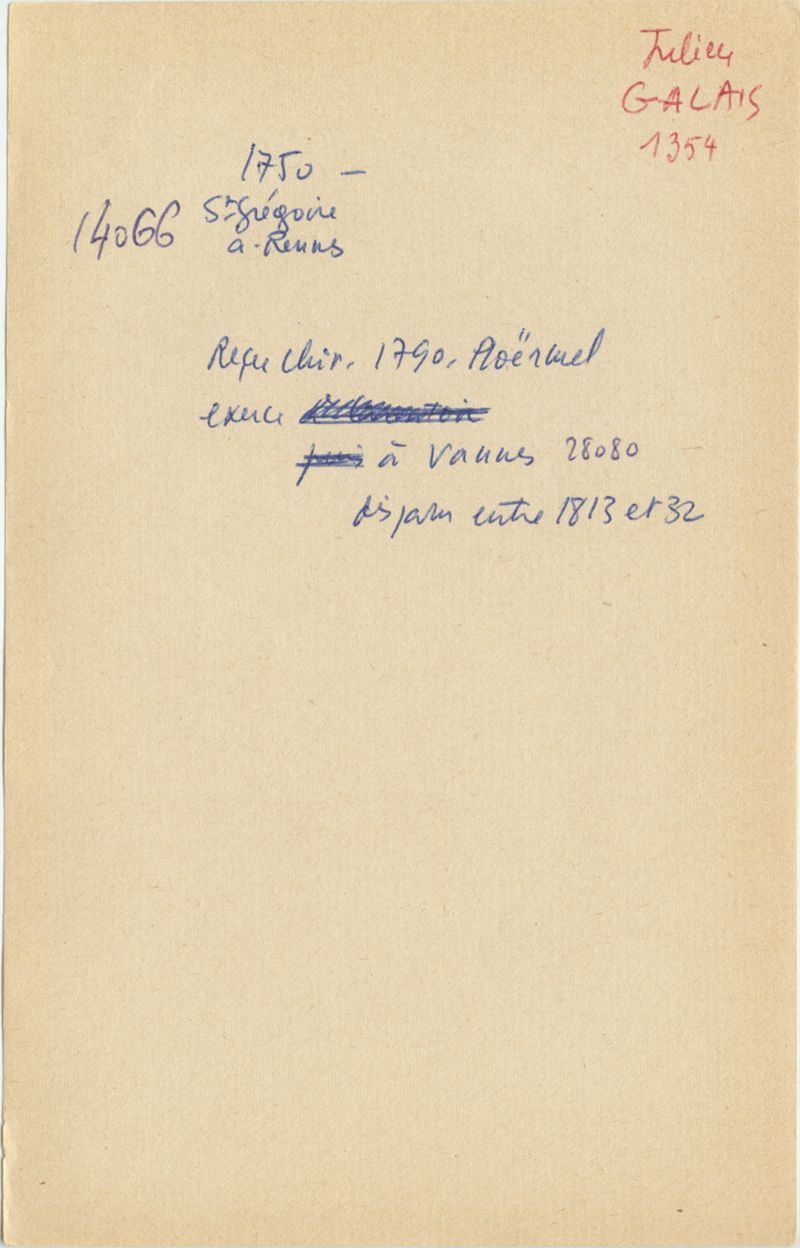 Julien
GALAIS
1354
1750 —
14066 St Grégoire
a. Rennes
Reçu chir. 1790. Ploërmel
exerce
puis à Vannes 28080
disparu entre 1813 et 32